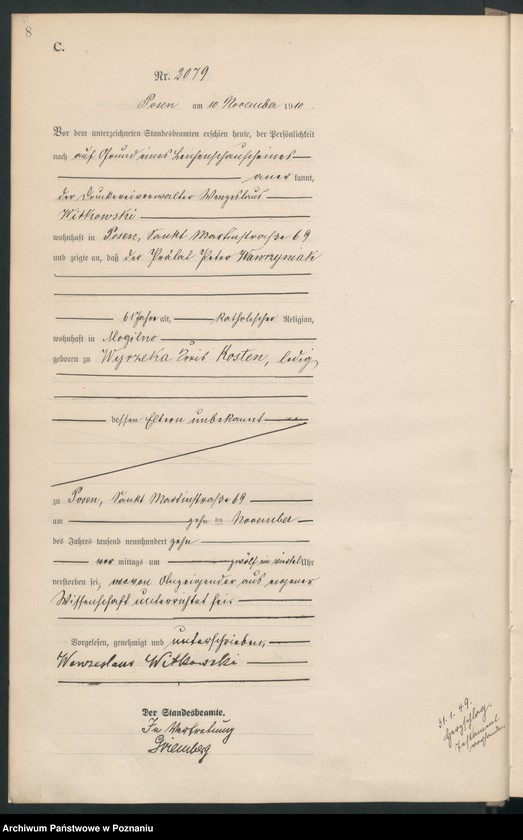 8
C.
Nr. 2079
Posen am 10 November 1910.
Vor dem unterzeichneten Standesbeamten erschien heute, der Persönlichkeit
nach auf Grund eines Leichenschauscheines
anerkannt,
der Druckereiverwalter Wenzeslaus
Witkowski
wohnhaft in Posen, Sankt Martinstraße 69
und zeigte an, daß der Prälat Peter Wawrzyniak
61 Jahre alt, katholischer Religion,
wohnhaft in Mogilno
geboren zu Wyrzeka Kreis Kosten, ledig
dessen Eltern unbekannt
zu Posen, Sankt Martinstraße 69
am zehn ten November
des Jahres tausend neunhundert zehn
vor mittags um zwölf ein viertel Uhr
verstorben sei, wovon Anzeigender aus eigener
Wissenschaft unterrichtet sei.
Vorgelesen, genehmigt und unterschrieben,
Wenzeslaus Witkowski
Der Standesbeamte.
In Vertretung
31.1.49.
Herzschlag.
Testament
vorhanden
Archiwum Państwowe w Poznaniu